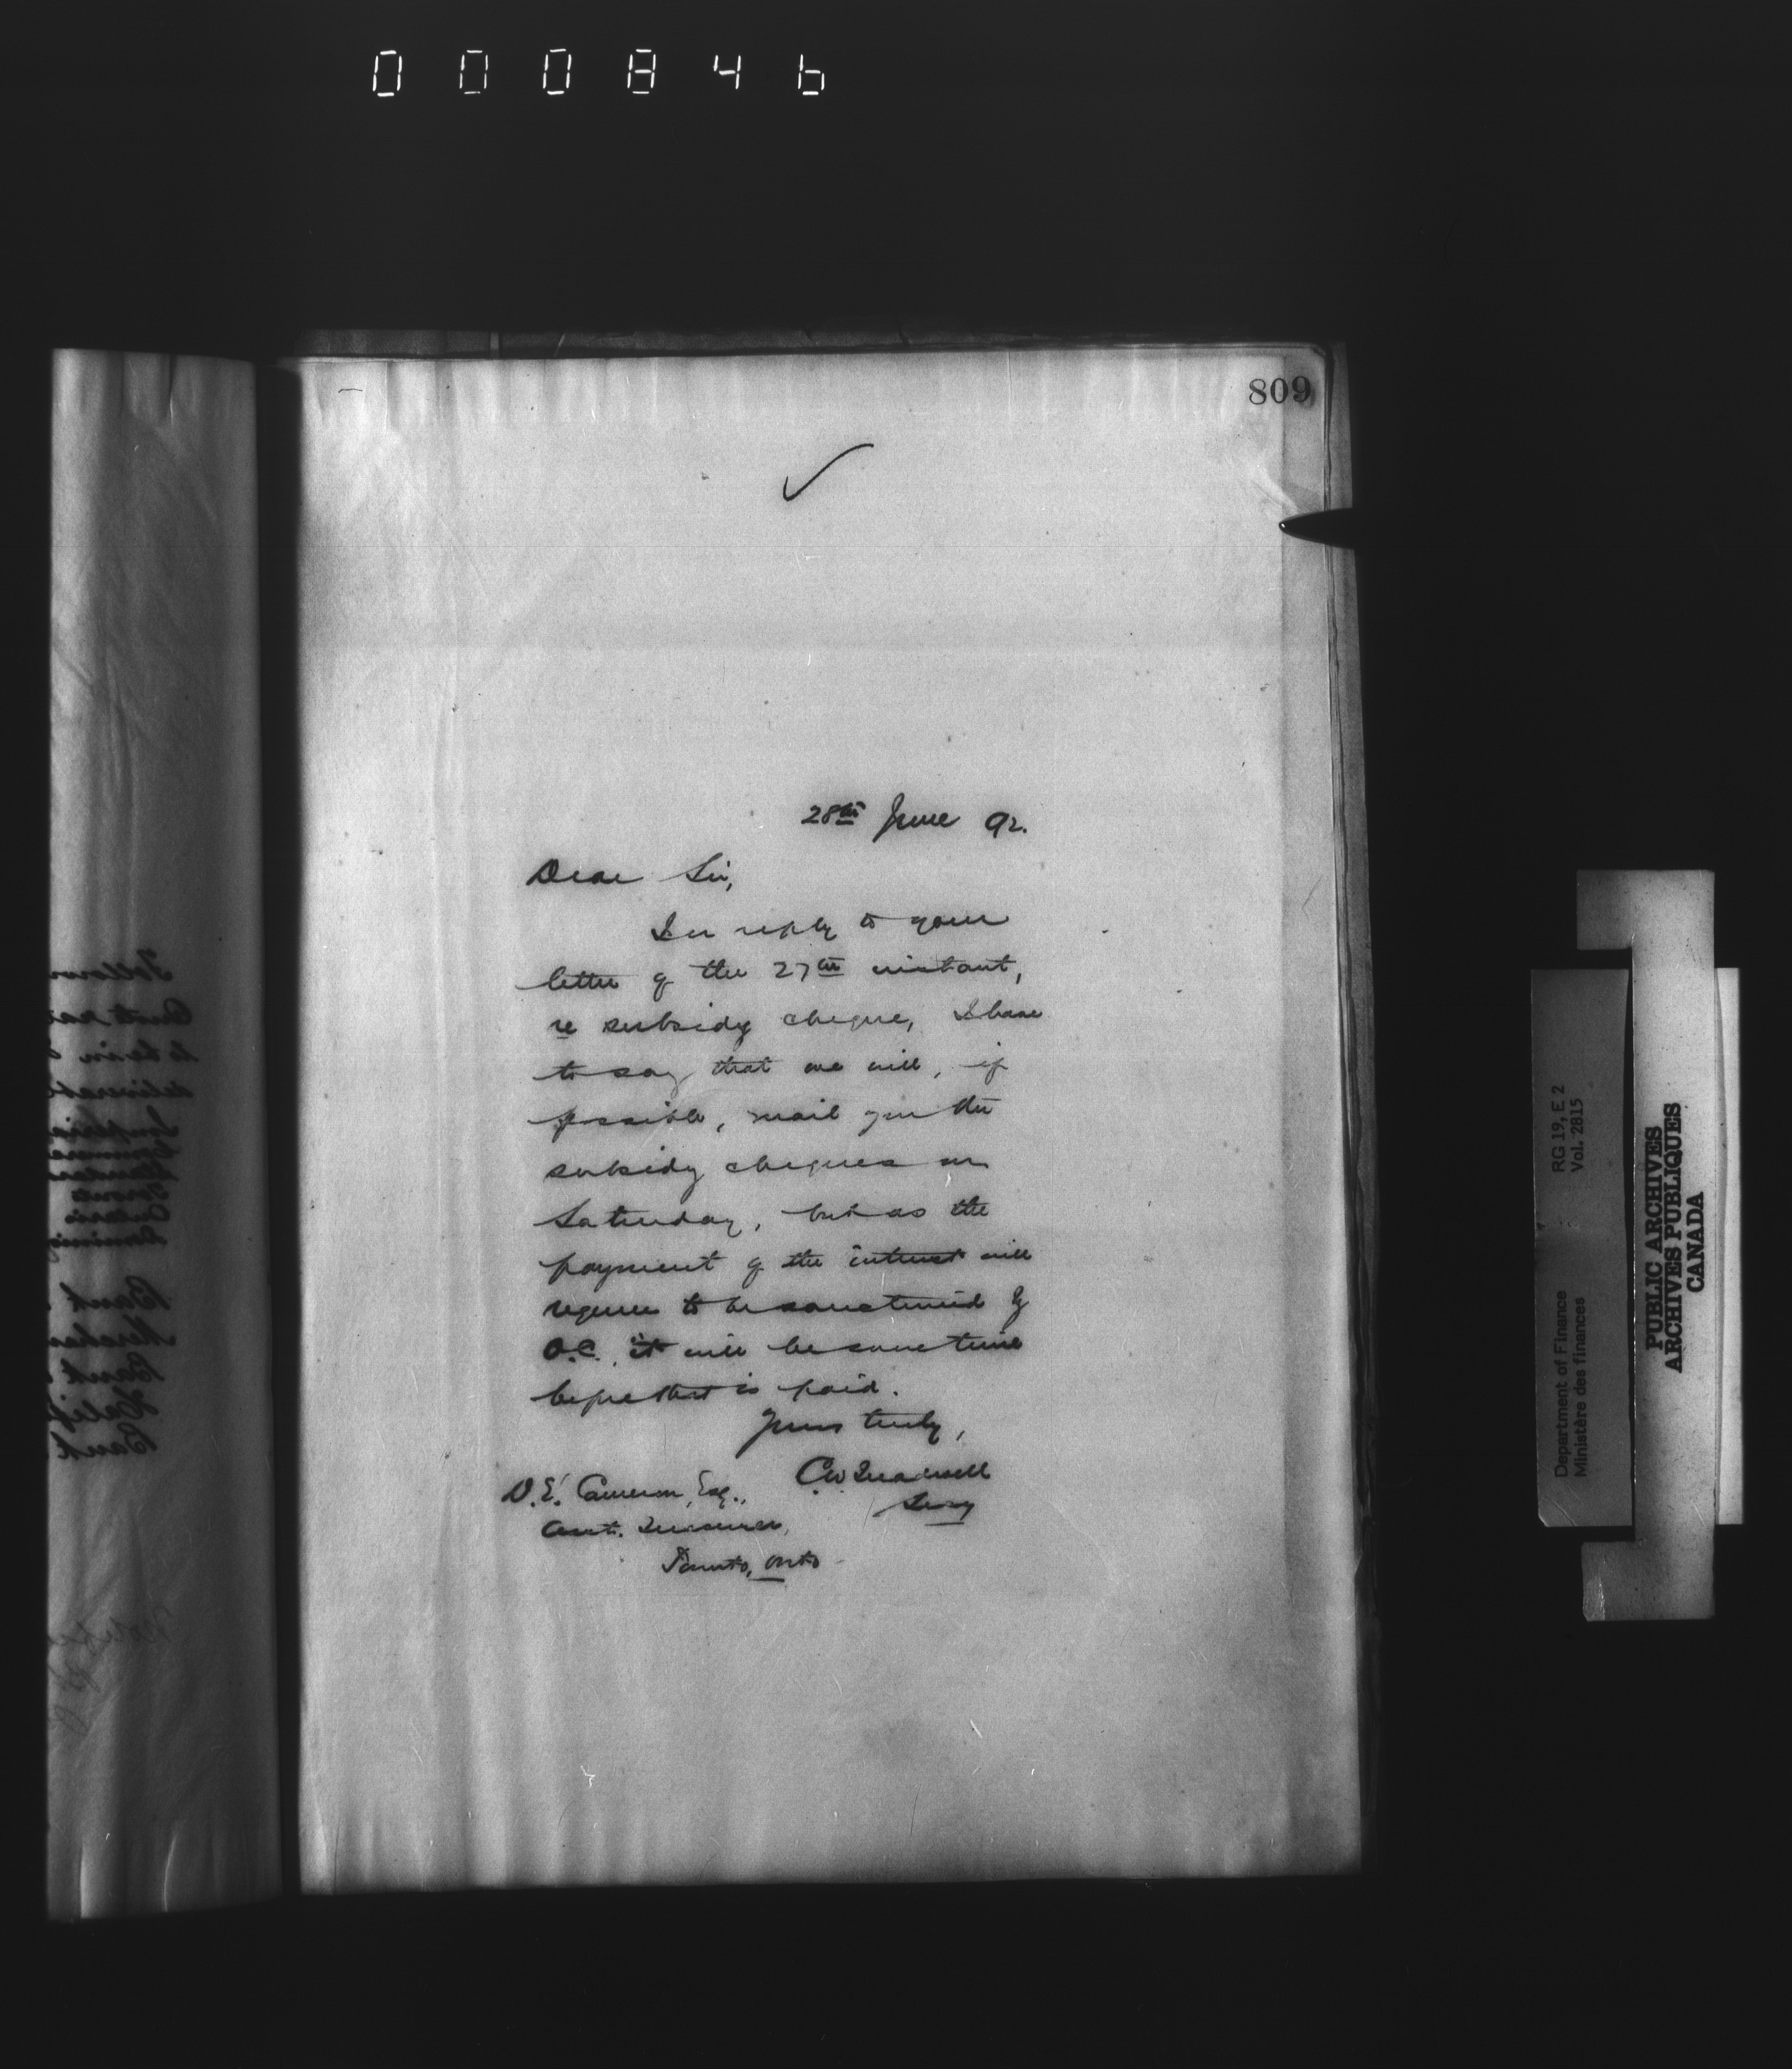 000846
809
28th June 92.
Dear Sir,
In reply to your
letter of the 27th instant,
re subsidy cheque, I have
to say that we will, if
possible, mail you the
subsidy cheques on
Saturday, but as the
payment of the interest will
require to be sanctioned by
O.C. it will be some time
before that is paid.
Yours truly,
C.W. Treadwell
Secy
D.E. Cameron, Esq.,
Asst. Treasurer,
Toronto, Onto
Department of Finance RG 19, E 2
Ministère des finances Vol. 2815
PUBLIC ARCHIVES
ARCHIVES PUBLIQUES
CANADA